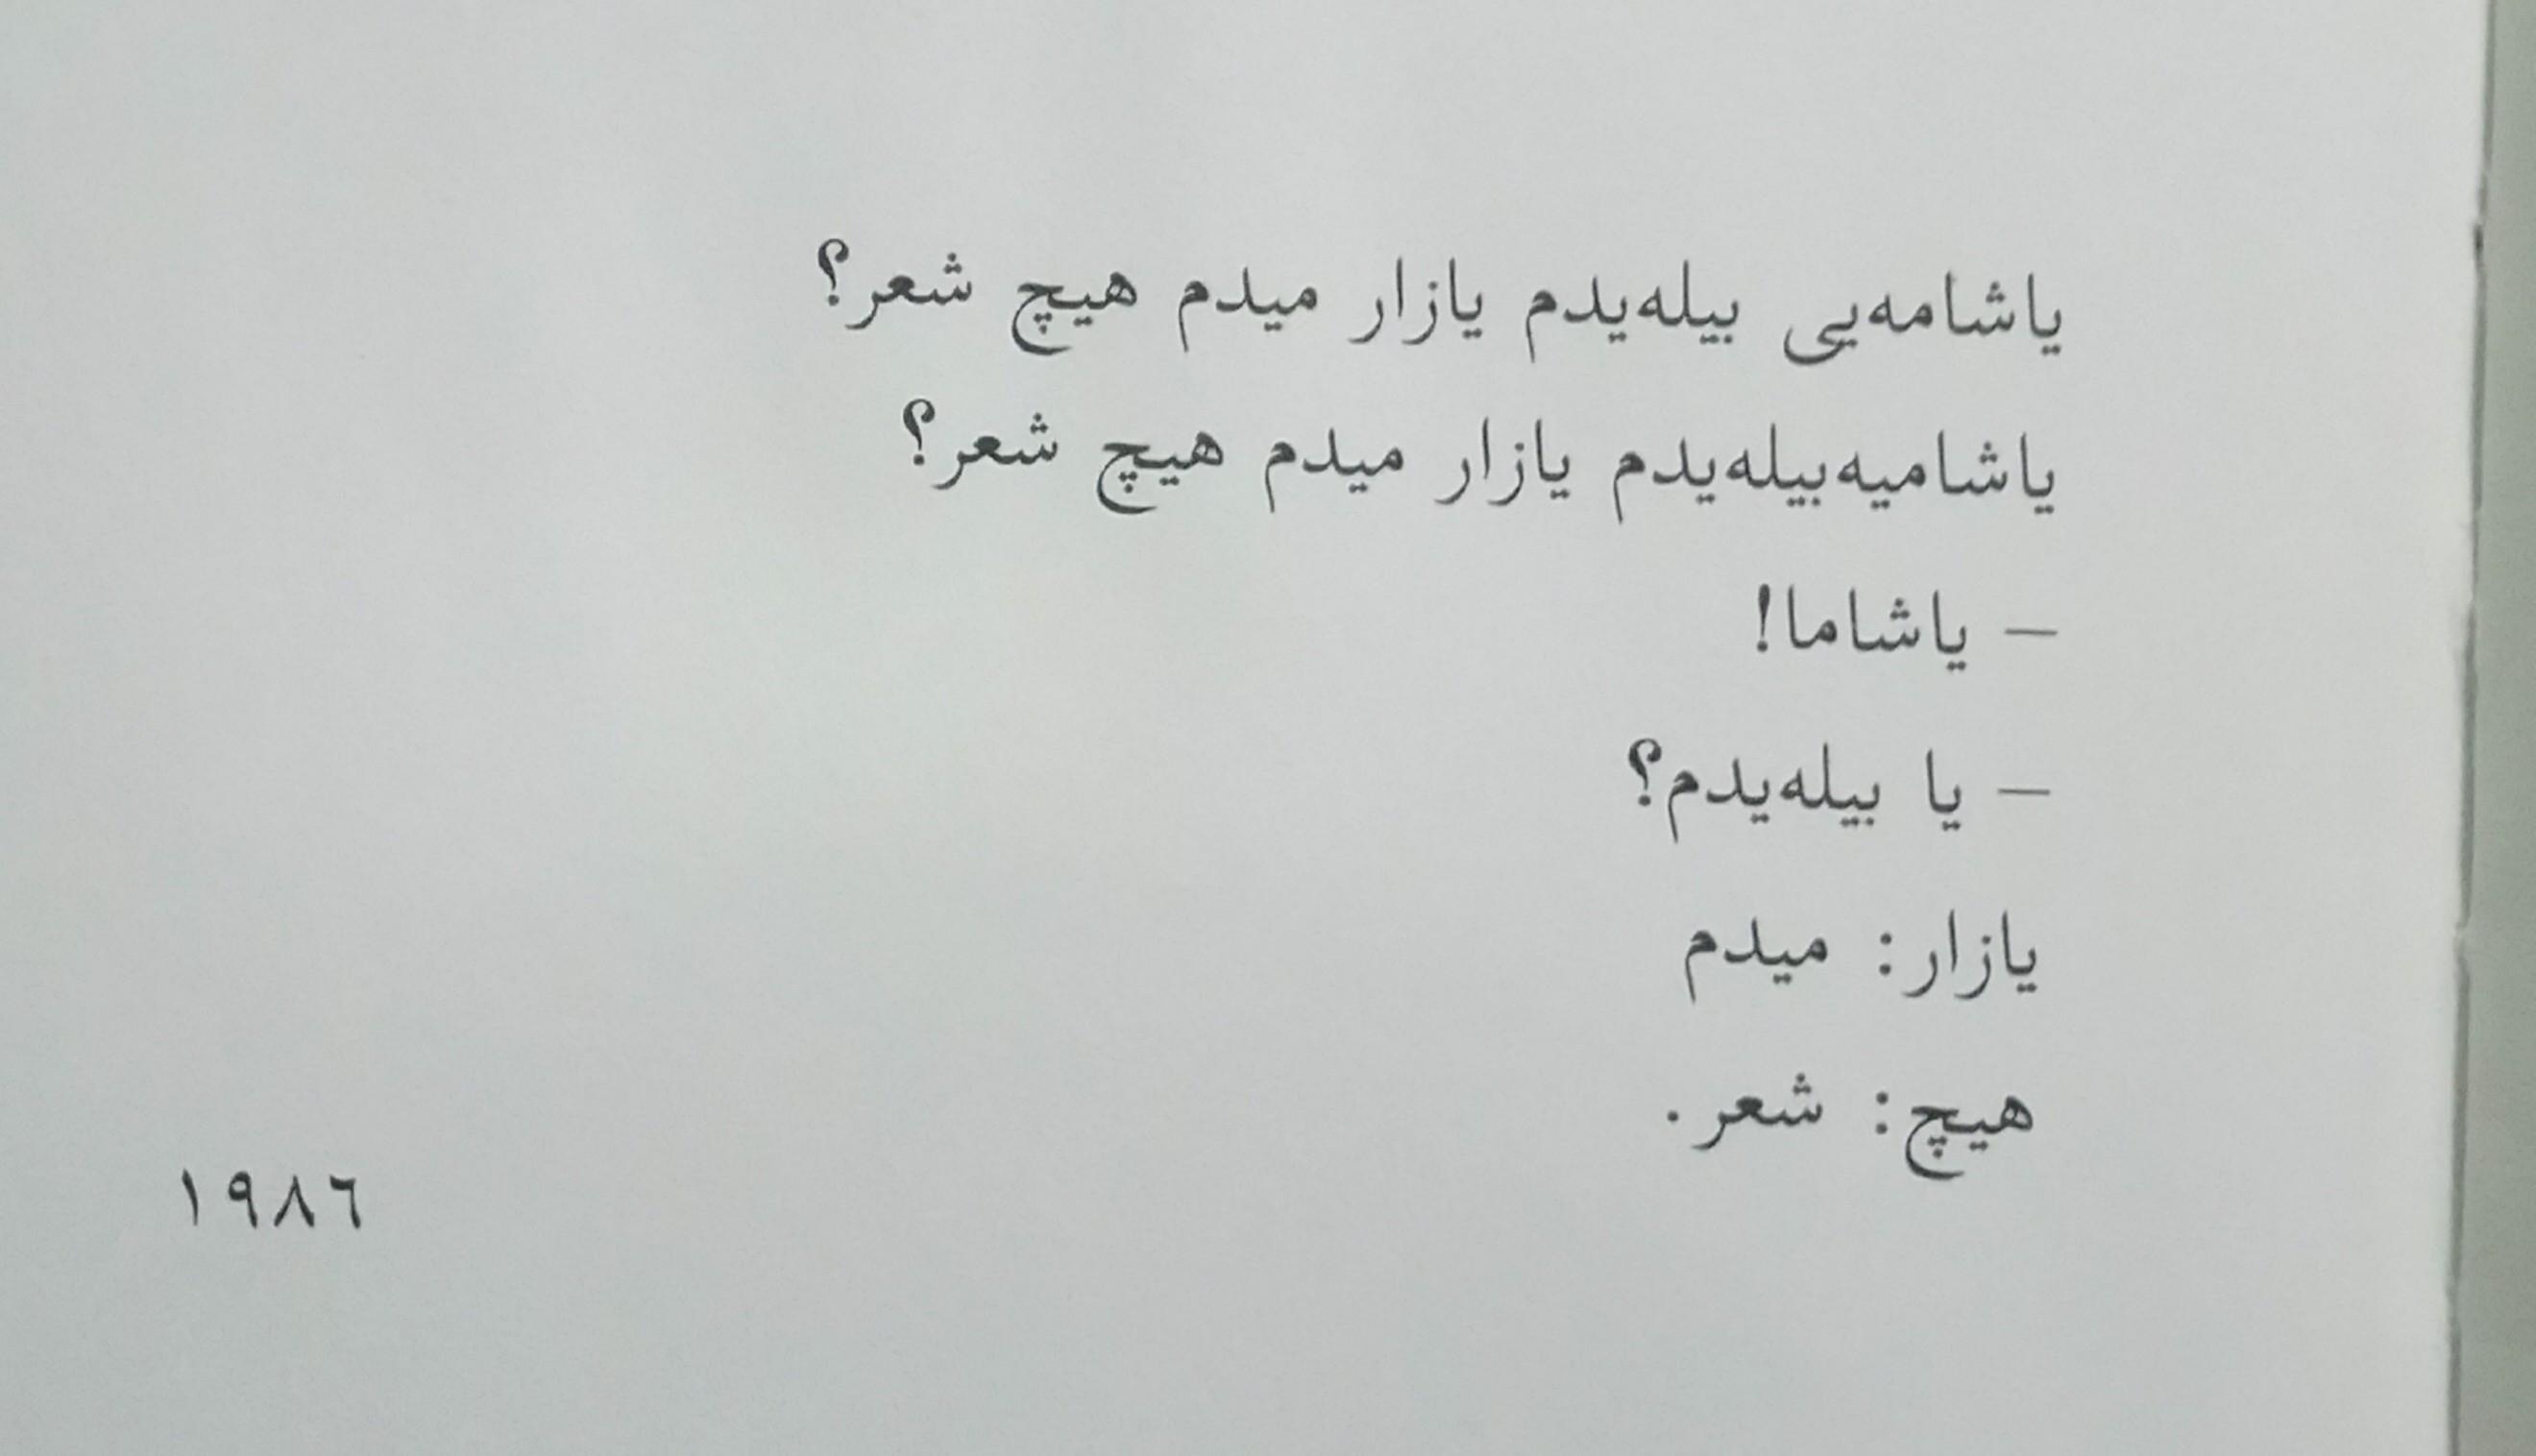 یاشامه‌یی بیله‌یدم یازار میدم هیچ شعر؟
یاشامیه‌بیله‌یدم یازار میدم هیچ شعر؟
– یاشاما!
– یا بیله‌یدم؟
یازار: میدم
هیچ: شعر.
١٩٨٦